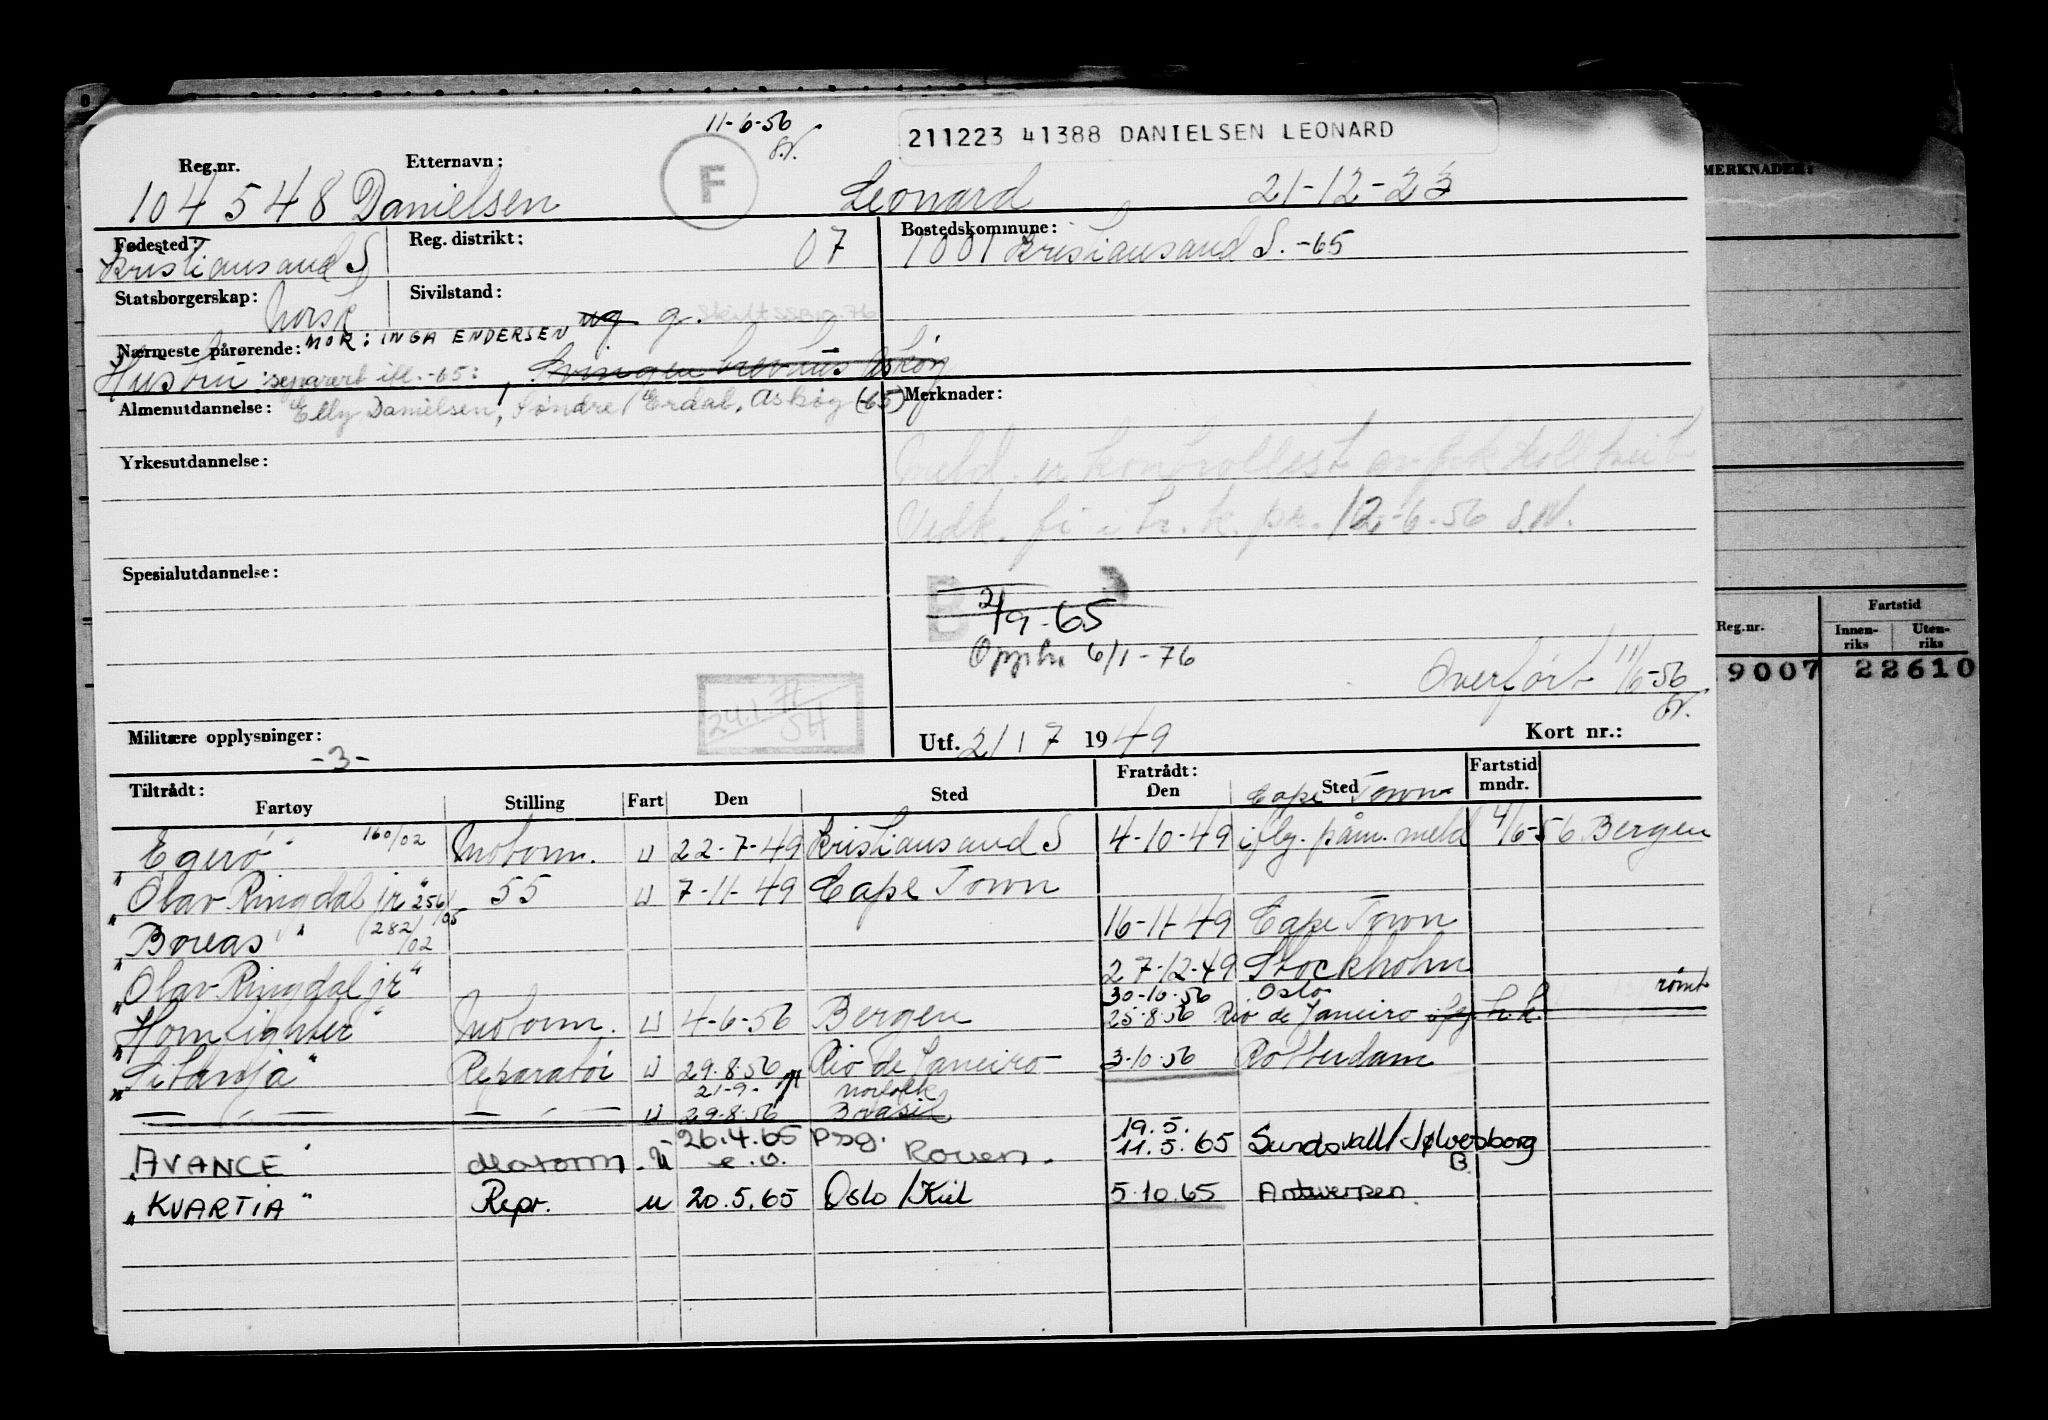 11-6-56
211223 41388 DANIELSEN LEONARD
Reg.nr. Etternavn: F
104548 Danielsen Leonard 21-12-23
MERKNADER:
Fødested: Reg. distrikt: 07 Bostedskommune:
Kristiansand S 1001 Kristiansand S. -65
Statsborgerskap: Norsk Sivilstand: ug g. Skilt
Nærmeste pårørende: MOR: INGA ENDERSEN
Hustru: separert -65:
Almenutdannelse: Elly Danielsen, Søndre Erdal, Askøy (-65) Merknader:
Yrkesutdannelse:
Meld. er kontrollert av
Vedk. pr. 12-6-56
Spesialutdannelse:
B 2/9-65
6/1-76
Overført 11/6-56
24.1.71
SH
Militære opplysninger: -3-
Utf. 21 7 1949 Kort nr.:
Reg.nr. Fartstid
Innen-riks Uten-riks
9007 22610
Tiltrådt: Fratrådt: Fartstid
Fartøy Stilling Fart Den Sted Den Sted mndr.
Cape Town
"Egerø" 160/02 Motorm. U 22-7-49 Kristiansand S 4-10-49 iflg. påm. meld 4/6-56 Bergen
"Olav Ringdal jr" 256/05 55 U 7-11-49 Cape Town
"Boreas" 282/02 16-11-49 Cape Town
"Olav Ringdal jr" 27-12-49 Stockholm
30-10-56 Oslo
"Hornlighter" Motorm. U 4-6-56 Bergen 25-8-56 Rio de Janeiro iflg. h.k. rømt
"Sitanja" Reparatør U 29.8.56 Rio de Janeiro 3-10-56 Rotterdam
21-9- Norfolk
— " — — " — U 29-8-56 Brasil
AVANCE Motorm U 26.4.65 psg. 19.5.
e.o. Rouen. 11.5.65 Sundsvall/Sølvesborg
B.
"KVARTIA" Repr. U 20.5.65 Oslo/Kiel 5.10.65 Antwerpen.